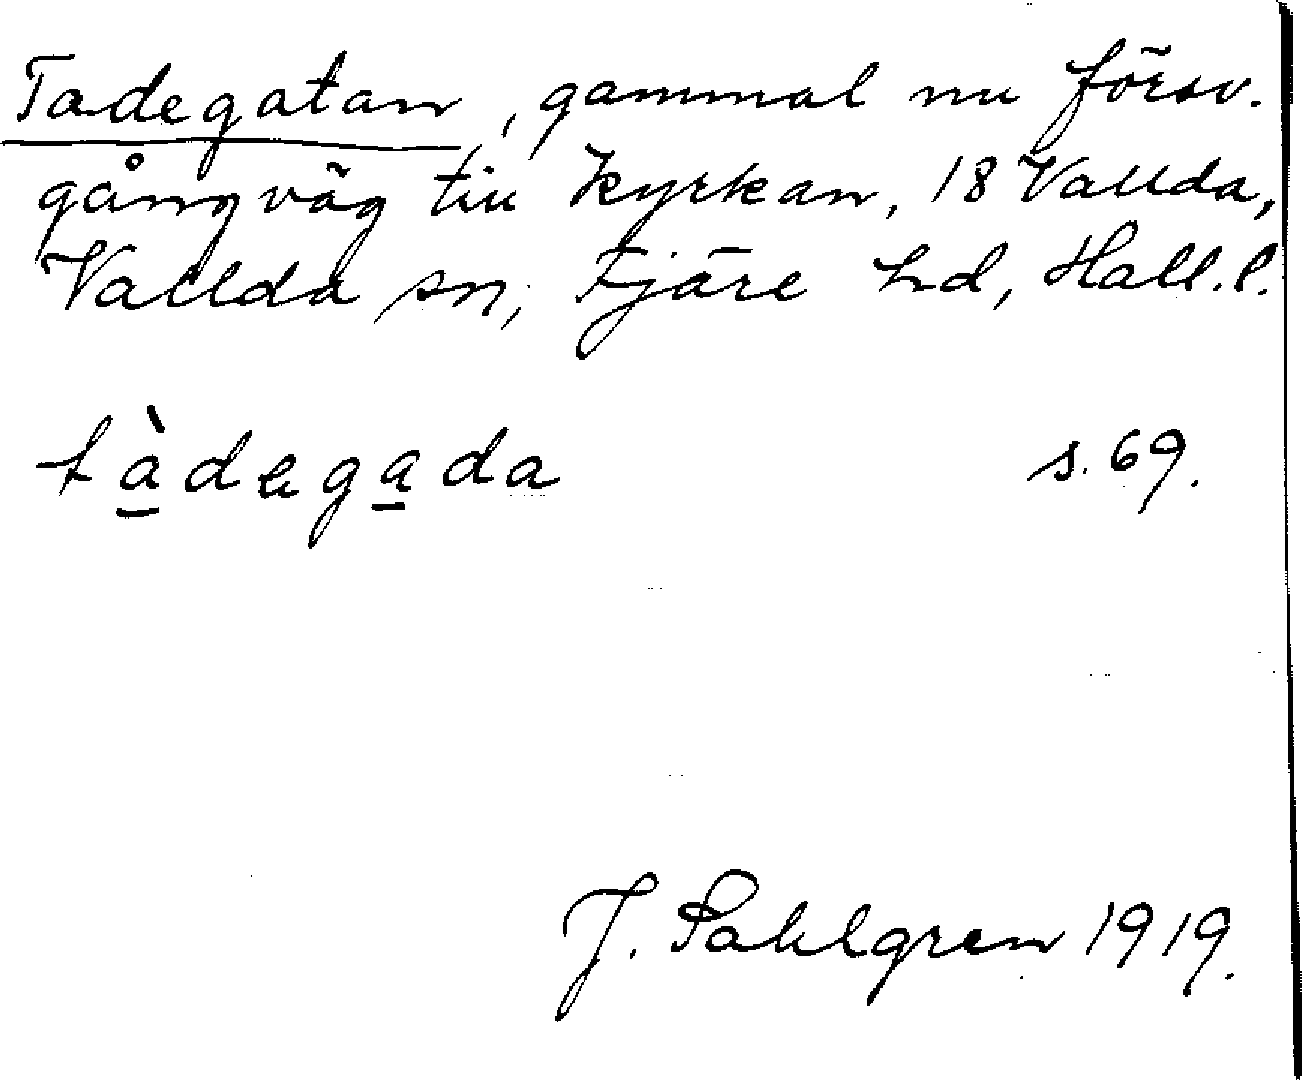 Tadegatan, gammal nu försv.
gångväg till Kyrkan, 18 Vallda,
Vallda sn, Fjäre hd, Hall. l.
tàdegada s. 69.
J. Sahlgren 1919.